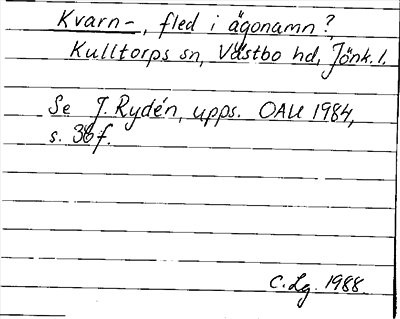 Kvarn-, fled i ägonamn?
Kulltorps sn, Västbo hd, Jönk. l.
Se J. Rydén, upps. OAU 1984,
s. 36f.
C. Lg. 1988